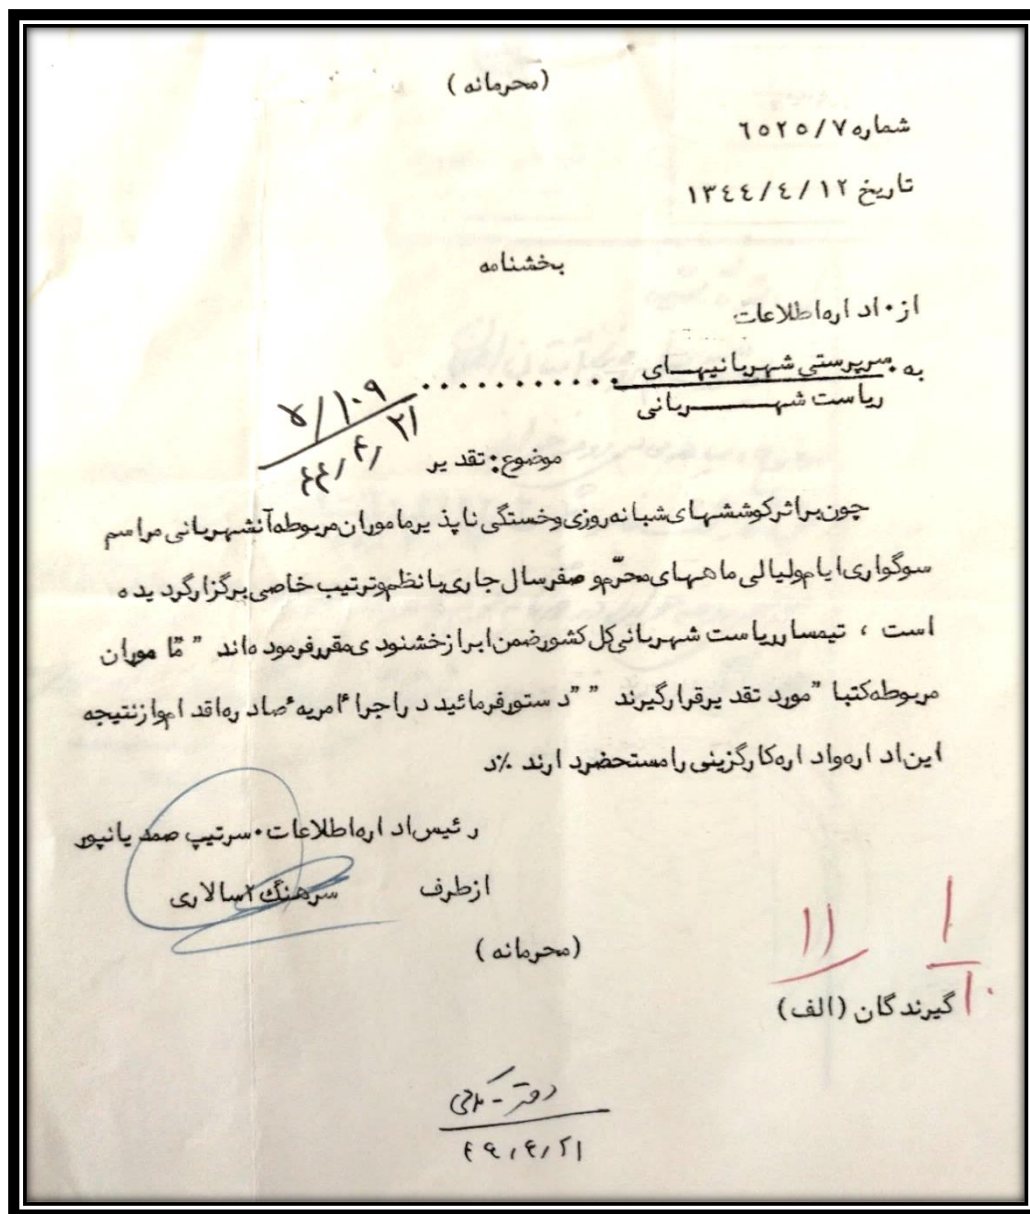 (محرمانه)
شماره ٦٥٢٥/٧
تاریخ ١٣٤٤/٤/١٢
بخشنامه
از۰ اداره اطلاعات
به۰ سرپرستی شهربانیهای ............
ریاست شهربانی
۵/۱۰۹
۴۴/۴/۲۱
موضوع۰ تقدیر
چون براثر کوششهای شبانه روزی وخستگی ناپذیر ماموران مربوطه آنشهربانی مراسم
سوگواری ایام ولیالی ماههای محرّم و صفر سال جاری با نظم وترتیب خاصی برگزار گردیده
است ، تیمسار ریاست شهربانی کل کشور ضمن ابراز خشنودی مقرر فرموده اند " مٌا موران
مربوطه کتبا " مورد تقدیر قرارگیرند " " دستور فرمائید در اجراٴ امریهٴ صادره اقدام واز نتیجه
این اداره واداره کارگزینی را مستحضردارند ٪د
رئیس اداره اطلاعات۰ سرتیپ صمدیانپور
ازطرف سرهنگ ۲ سالاری
(محرمانه)
۱۱
۱
۱۰
گیرندگان (الف)
دفتر -
۴۴/۴/۲۱